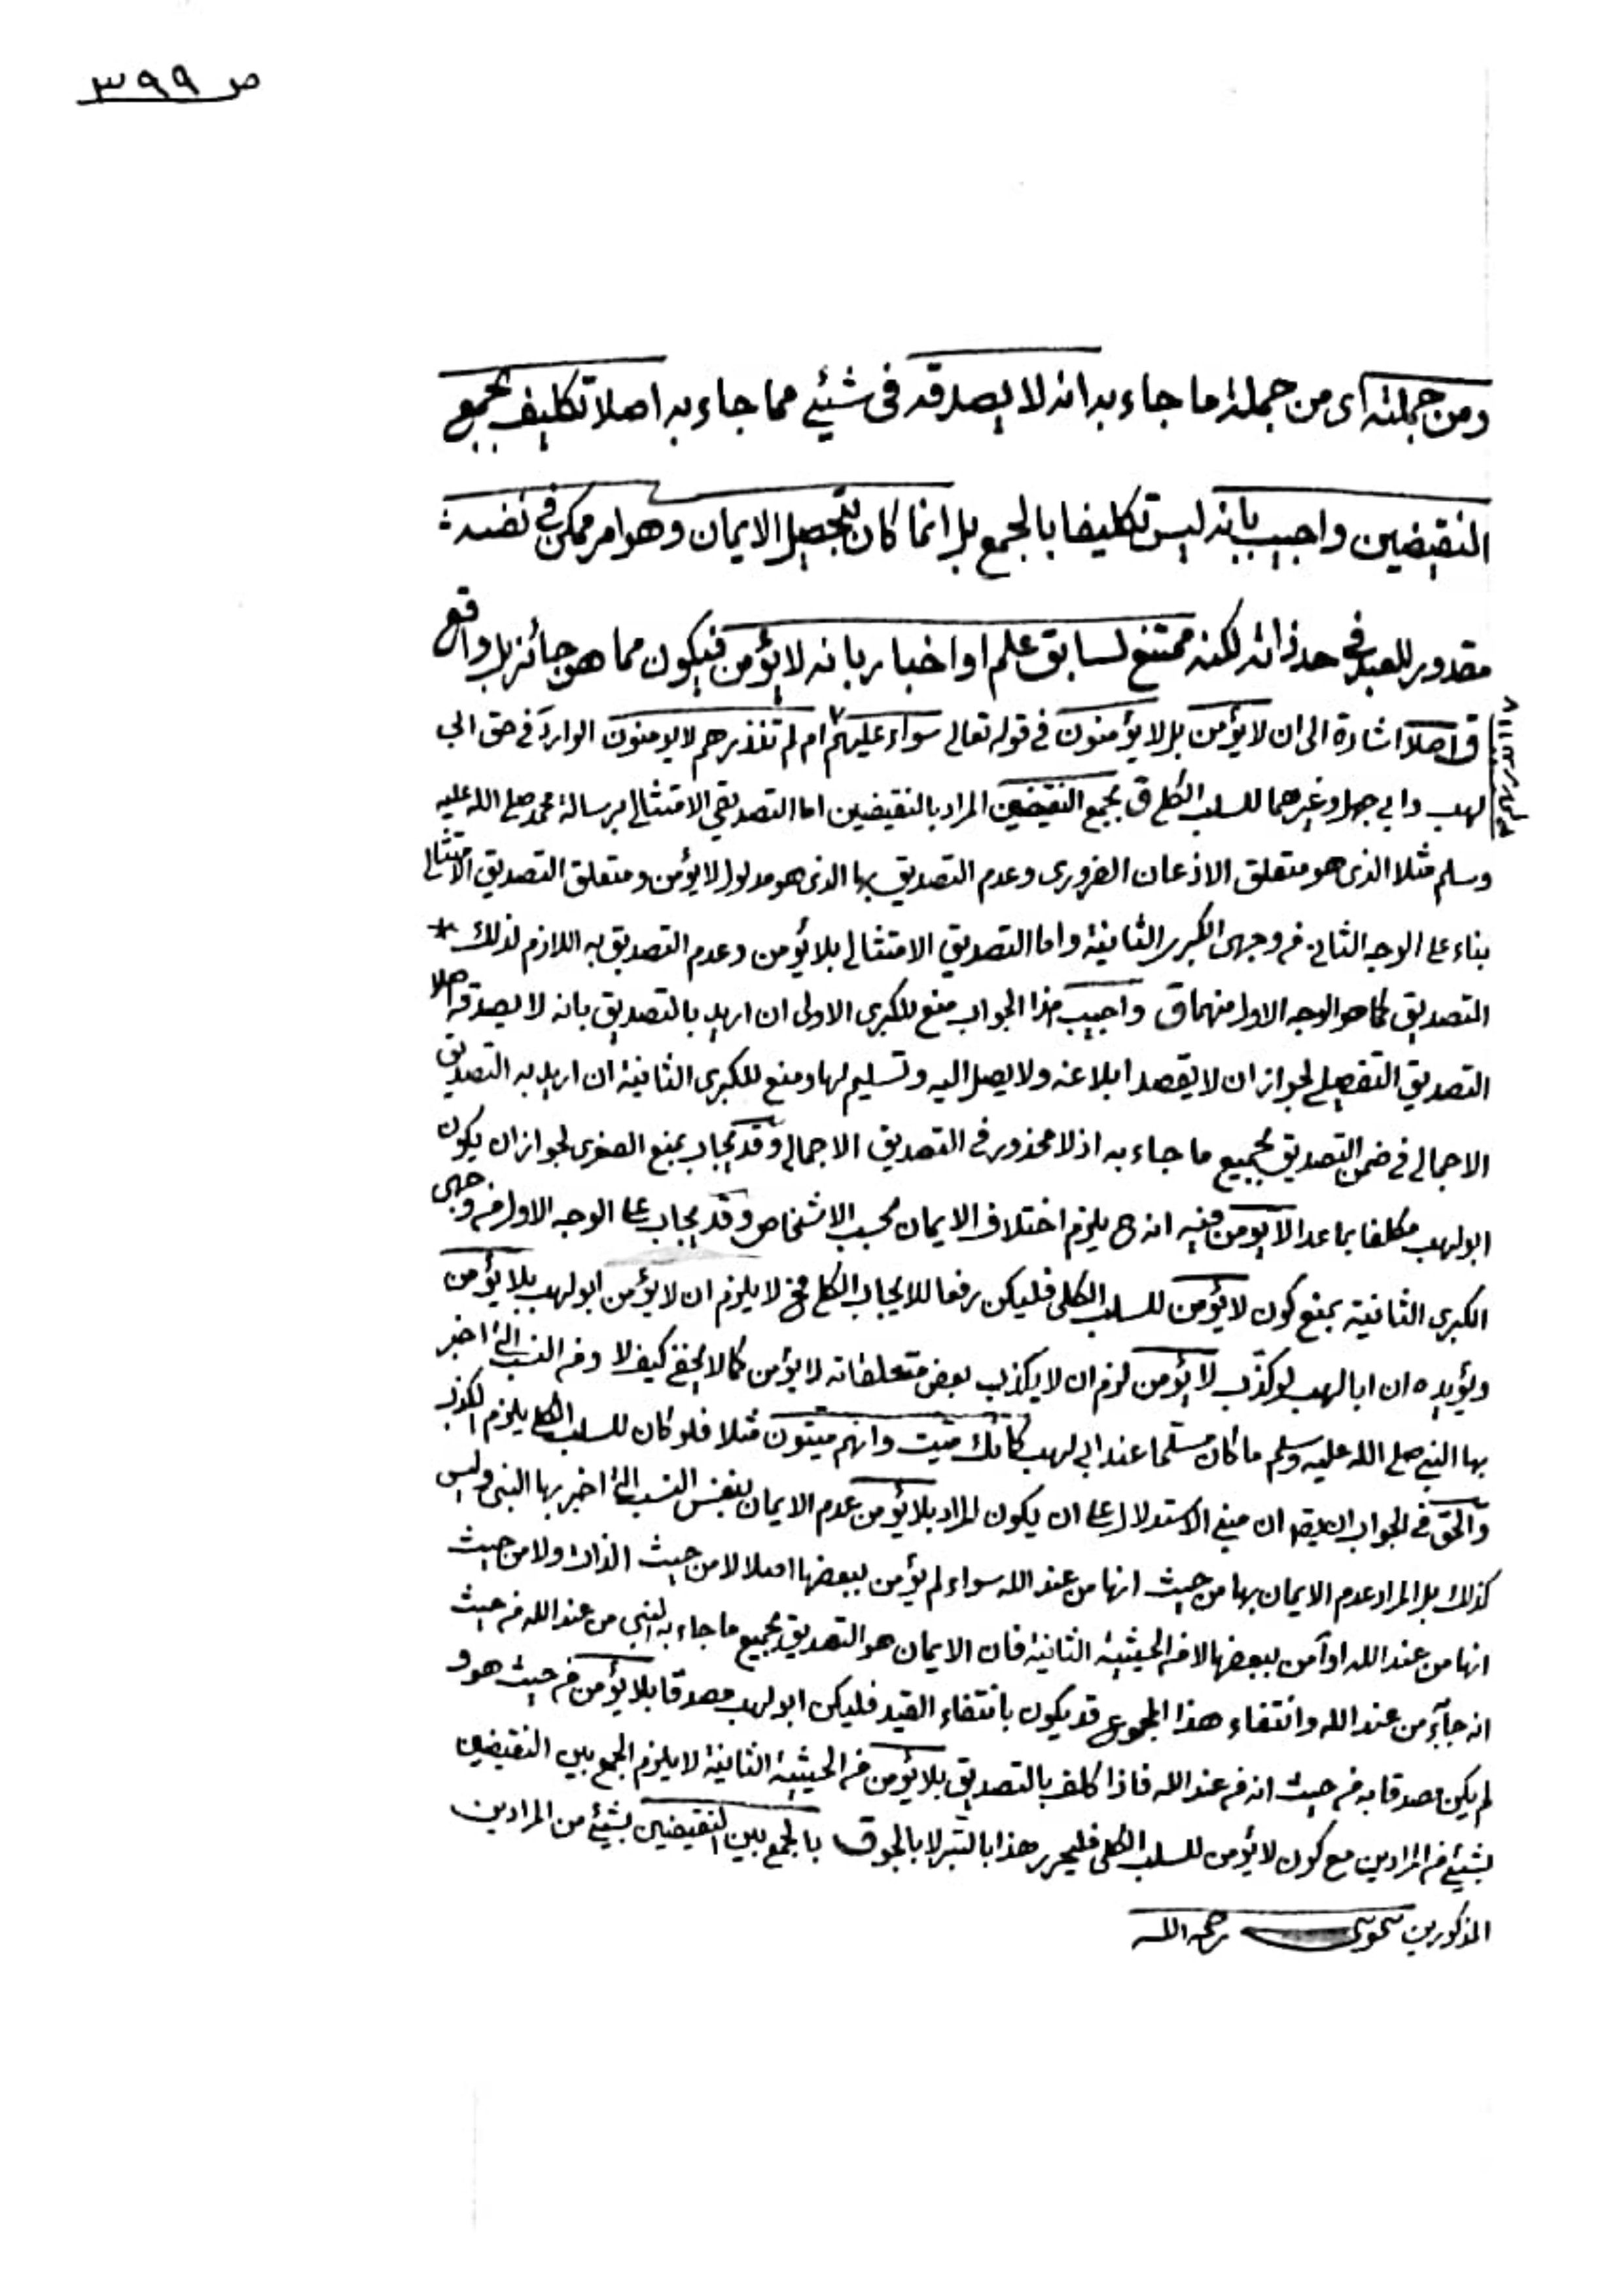 ص ٣٩٩
ومن جملته اى من جملة ما جاء به انه لا يصدقه فى شيئ مما جاء به اصلا تكليف بجمع
النقيضين واجيب بانه ليس تكليفا بالجمع بل انما كان بتحصيل الايمان وهو امر ممكن فى نفسه
مقدور للعبد فى حد ذاته لكنه ممتنع لسابق علم او اخبار بانه لا يؤمن فيكون مما هو جائز بل واقع
ق اصلا اشارة الى ان لا يؤمن بل لا يؤمنون فى قوله تعالى سواء عليهم ام لم تنذرهم لا يومنون الوارد فى حق ابى
لهب وابي جهل وغيرهما للسلب الكلى ق بجمع النقيضين المراد بالنقيضين اما التصديق الامتثالى برسالة محمد صلى الله عليه
وسلم مثلا الذى هو متعلق الاذعان الضرورى وعدم التصديق بها الذى هو مدلول لا يؤمن ومتعلق التصديق الامتثالى
بناء على الوجه الثانى من وجهى الكبرى الثانية واما التصديق الامتثالى بلا يؤمن وعدم التصديق به اللازم لذلك *
التصديق كما هو الوجه الاول منهما ق واجيب هذا الجواب منع للكبرى الاولى ان اريد بالتصديق بانه لا يصدقه اصلا
التصديق التفصيلى لجواز ان لا يقصد ابلاغه ولا يصل اليه وتسليم لها ومنع للكبرى الثانية ان اريد به التصديق
الاجمالى فى ضمن التصديق بجميع ما جاء به اذ لا محذور فى التصديق الاجمالى وقد يجاب بمنع الصغرى لجواز ان يكون
ابو لهب مكلفا بما عدا لا يومن وفيه انه ح يلزم اختلاف الايمان بحسب الاشخاص وقد يجاب على الوجه الاول من وجهى
الكبرى الثانية بمنع كون لا يؤمن للسلب الكلى فليكن رفعا للايجاب الكلى فح لا يلزم ان لا يؤمن ابو لهب بلا يؤمن
ويؤيده ان ابا لهب لو كذّب لا يؤمن لزم ان لا يكذب بعض متعلقاته لا يؤمن كما لا يخفى كيف لا ومن النسب التى اخبر
بها النبى صلى الله عليه وسلم ما كان مسلما عند ابى لهب كانك ميت وانهم ميتون مثلا فلو كان للسلب الكلى يلزم الكذب
والحق فى الجواب ان يقال ان مبنى الاستدلال على ان يكون المراد بلا يؤمن عدم الايمان بنفس النسب التى اخبر بها النبى وليس
كذلك بل المراد عدم الايمان بها من حيث انها من عند الله سواء لم يؤمن ببعضها اصلا لا من حيث الذات ولا من حيث
انها من عند الله او آمن ببعضها لا من الحيثية الثانية فان الايمان هو التصديق بجميع ما جاء به النبى من عند الله من حيث
انه جاء من عند الله وانتفاء هذا المجموع قد يكون بانتفاء القيد فليكن ابو لهب مصدقا بلا يؤمن من حيث هو و
لم يكن مصدقا به من حيث انه من عند الله فاذا كلف بالتصديق بلا يؤمن من الحيثية الثانية لا يلزم الجمع بين النقيضين
بشيئ من المرادين مع كون لا يؤمن للسلب الكلى فليحرر هذا بالتبر لا بالجو ق بالجمع بين النقيضين بشيئ من المرادين
المذكورين رحمه الله